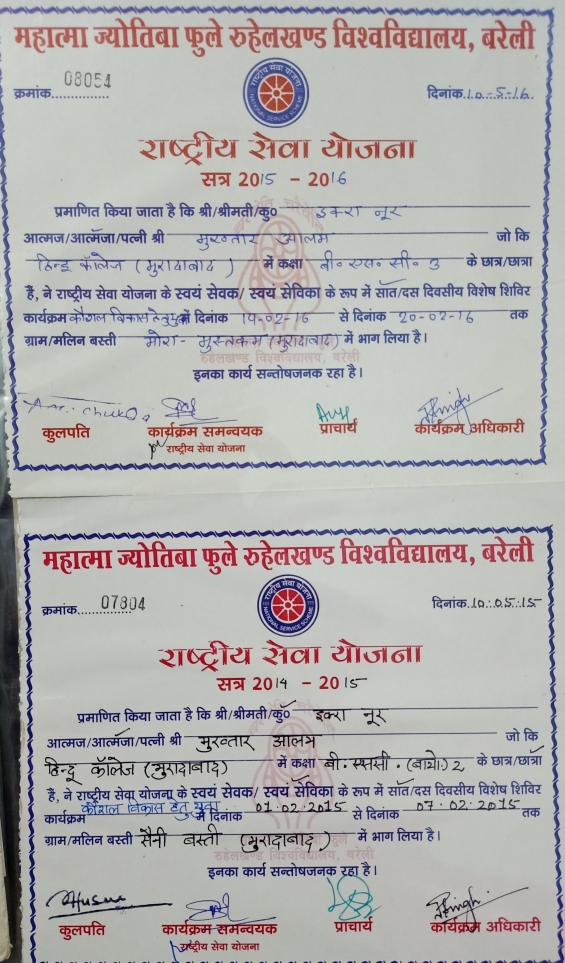 महात्मा ज्योतिबा फुले रुहेलखण्ड विश्वविद्यालय, बरेली
क्रमांक.............. 08054
दिनांक.10-5-16.
राष्ट्रीय सेवा योजना
NATIONAL SERVICE SCHEME
राष्ट्रीय सेवा योजना
सत्र 2015 - 2016
प्रमाणित किया जाता है कि श्री/श्रीमती/कु० इकरा नूर
आत्मज/आत्मजा/पत्नी श्री मुख्तार आलम जो कि
हिन्दू कॉलेज (मुरादाबाद) में कक्षा बी० एस० सी० 3 के छात्र/छात्रा
हैं, ने राष्ट्रीय सेवा योजना के स्वयं सेवक/ स्वयं सेविका के रूप में सात/दस दिवसीय विशेष शिविर
कार्यक्रम कौशल विकास हेतु युवा में दिनांक 14-02-16 से दिनांक 20-02-16 तक
ग्राम/मलिन बस्ती मोरा- मुस्तकम (मुरादाबाद) में भाग लिया है।
रुहेलखण्ड विश्वविद्यालय, बरेली
इनका कार्य सन्तोषजनक रहा है।
कुलपति कार्यक्रम समन्वयक प्राचार्य कार्यक्रम अधिकारी
राष्ट्रीय सेवा योजना
महात्मा ज्योतिबा फुले रुहेलखण्ड विश्वविद्यालय, बरेली
क्रमांक.............. 07804
दिनांक.10.05.15
राष्ट्रीय सेवा योजना
NATIONAL SERVICE SCHEME
राष्ट्रीय सेवा योजना
सत्र 2014 - 2015
प्रमाणित किया जाता है कि श्री/श्रीमती/कु० इकरा नूर
आत्मज/आत्मजा/पत्नी श्री मुख्तार आलम जो कि
हिन्दू कॉलेज (मुरादाबाद) में कक्षा बी. एससी. (बायो) 2 के छात्र/छात्रा
हैं, ने राष्ट्रीय सेवा योजना के स्वयं सेवक/ स्वयं सेविका के रूप में सात/दस दिवसीय विशेष शिविर
कार्यक्रम कौशल विकास हेतु युवा में दिनांक 01.02.2015 से दिनांक 07.02.2015 तक
ग्राम/मलिन बस्ती सैनी बस्ती (मुरादाबाद) में भाग लिया है।
रुहेलखण्ड विश्वविद्यालय, बरेली
इनका कार्य सन्तोषजनक रहा है।
कुलपति कार्यक्रम समन्वयक प्राचार्य कार्यक्रम अधिकारी
राष्ट्रीय सेवा योजना